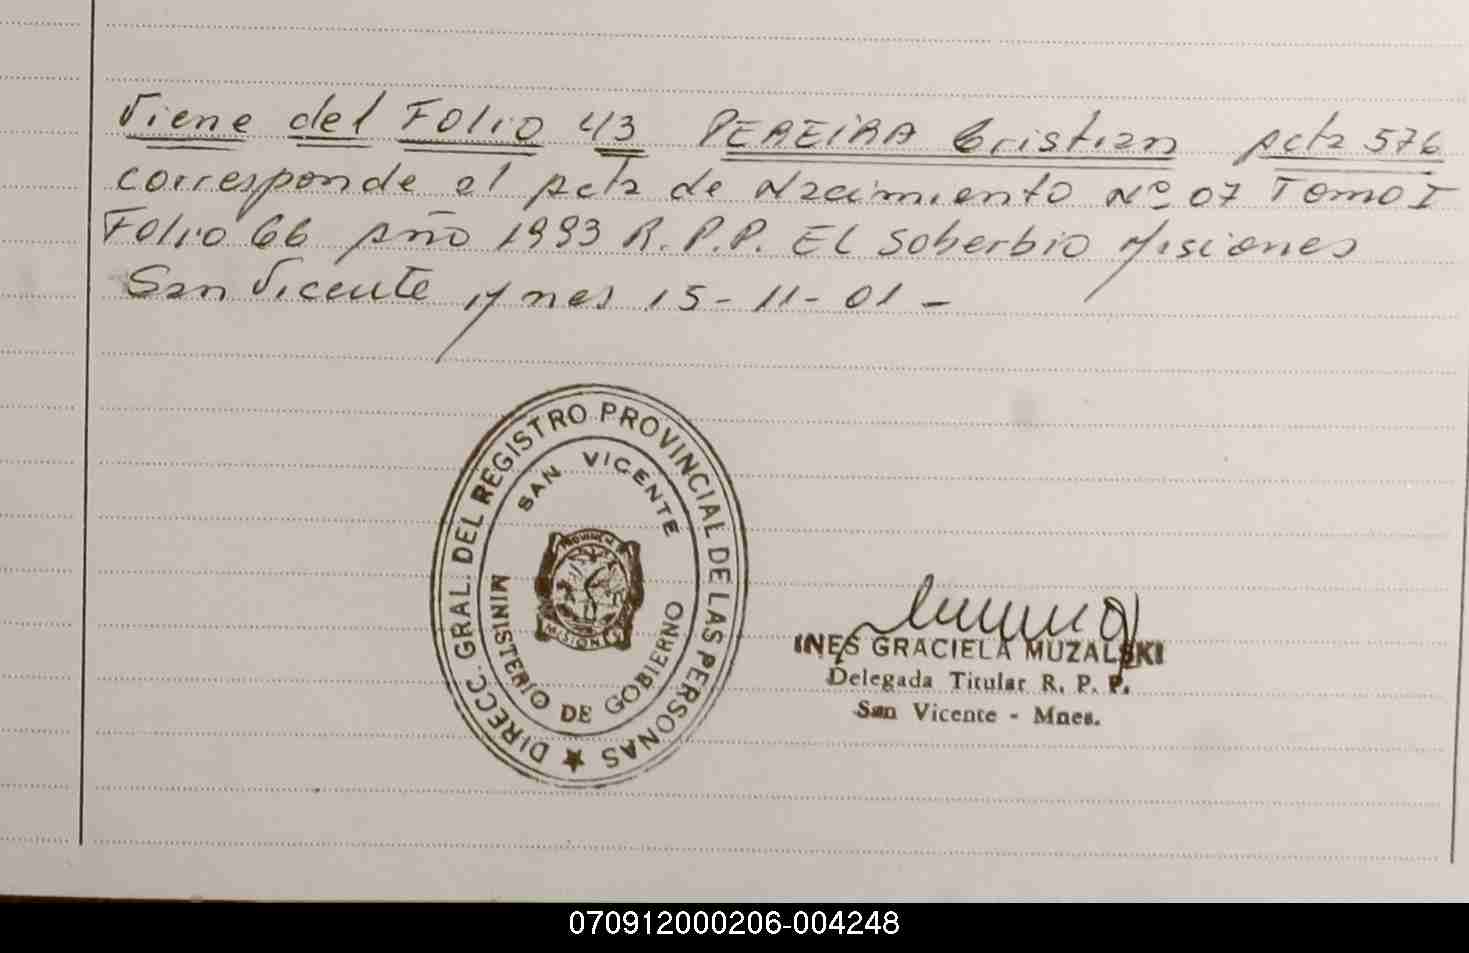 Viene del Folio 43 PEREIRA Cristian Acta 576
corresponde al Acta de Nacimiento Nº 07 Tomo I
Folio 66 Año 1993 R.P.P. El Soberbio Misiones
San Vicente Mnes 15-11-01-
DIRECC. GRAL. DEL REGISTRO PROVINCIAL DE LAS PERSONAS
SAN VICENTE
PROVINCIA
MISIONES
MINISTERIO DE GOBIERNO
INES GRACIELA MUZALSKI
Delegada Titular R. P. P.
San Vicente - Mnes.
070912000206-004248